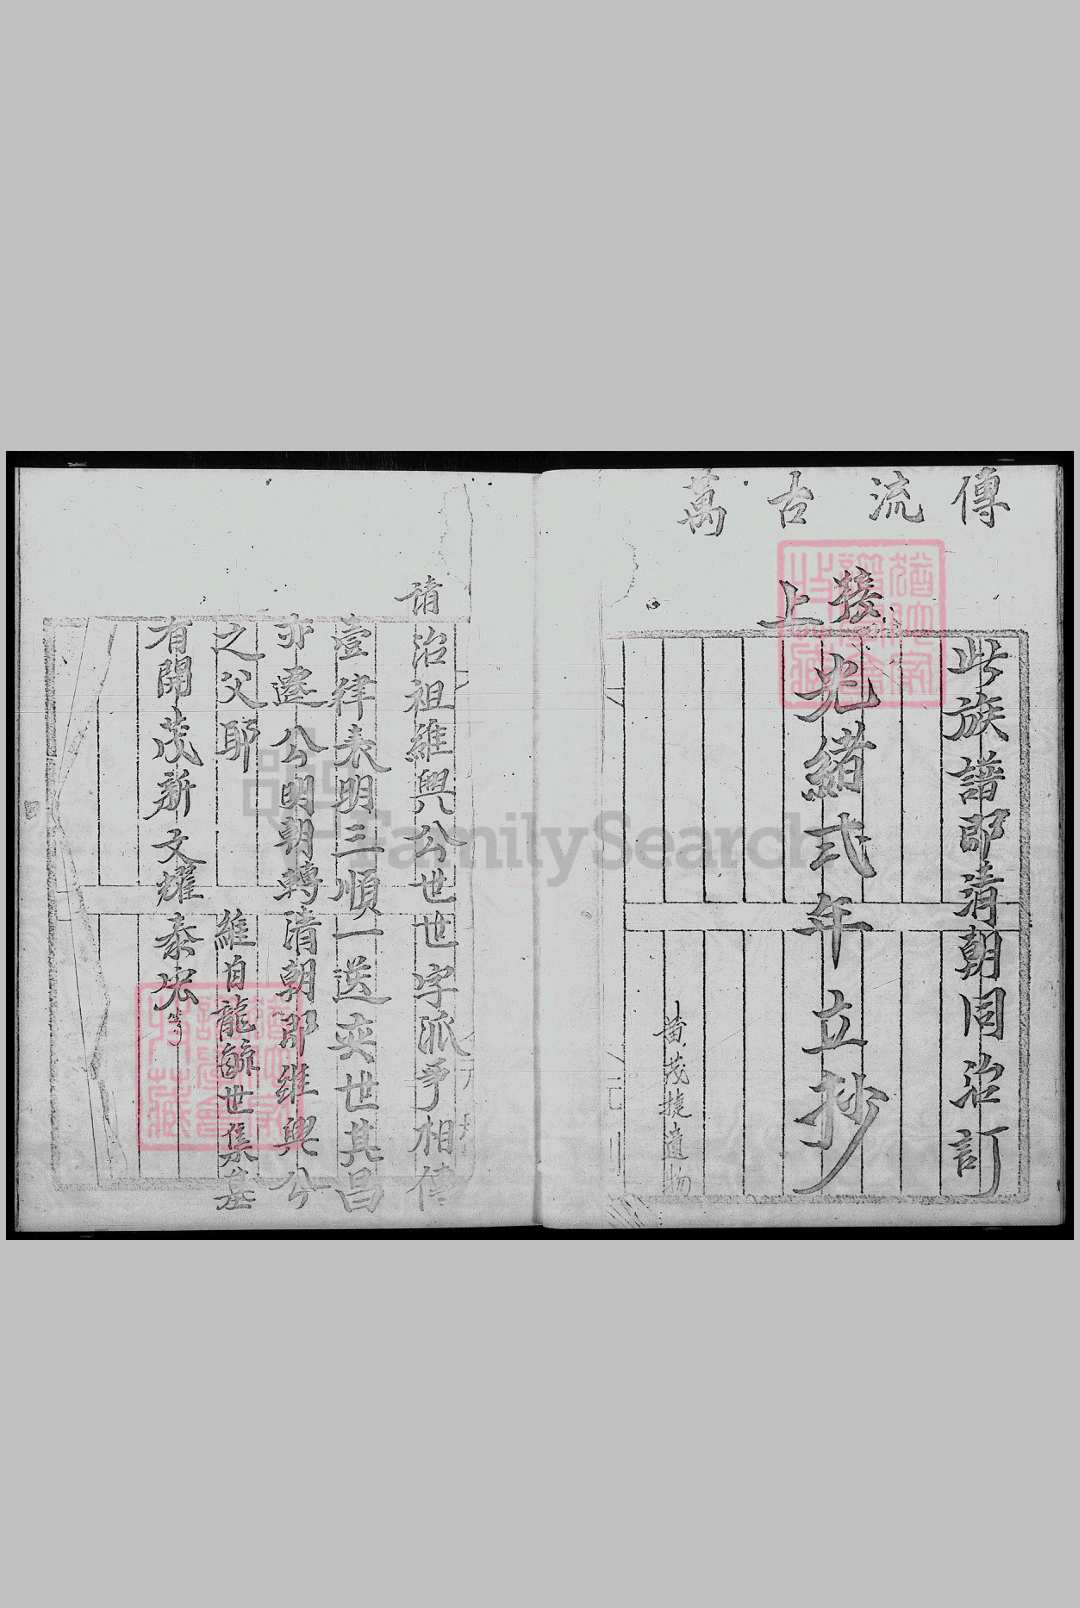 傳流古萬
此族譜即清朝同治訂
接上
光緒弍年立抄
黃茂捷遺物
請治祖維興公世世字派爭相傳
壹律表明三順一送夾世其昌
亦遷公明朝轉清朝即維興公
之父耶
維自龍毓世集基
有開茂新文耀泰宏等
FamilySearch